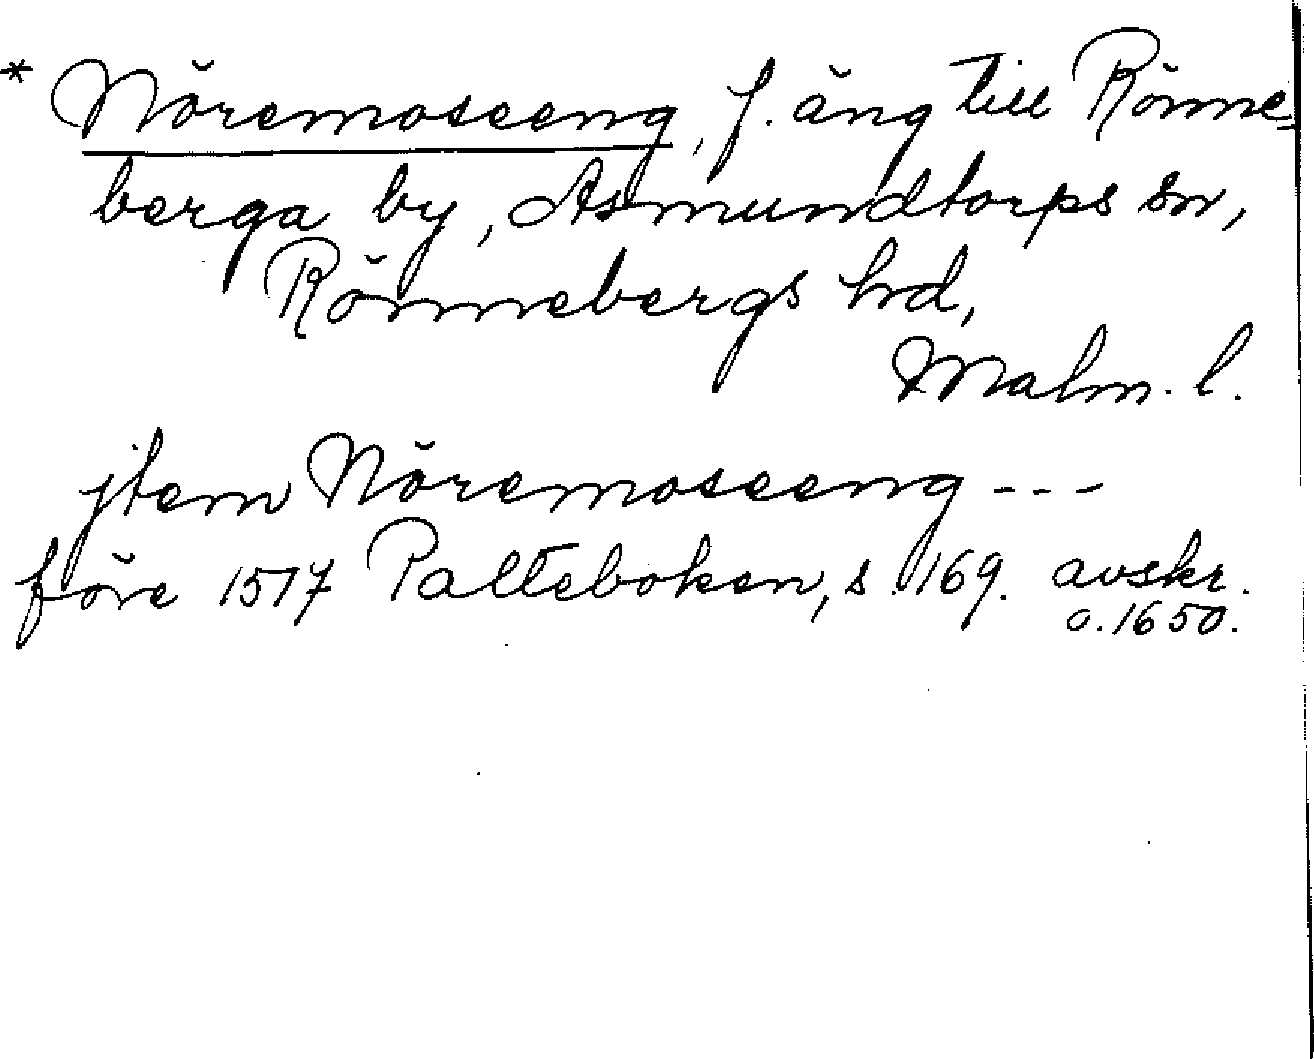 * Nöremoseeng, f. äng till Rönne-
berga by, Asmundtorps sn,
Rönnebergs hd,
Malm. l.
jtem Nöremoseeng ---
före 1517 Palteboken, s. 169. avskr.
o. 1650.